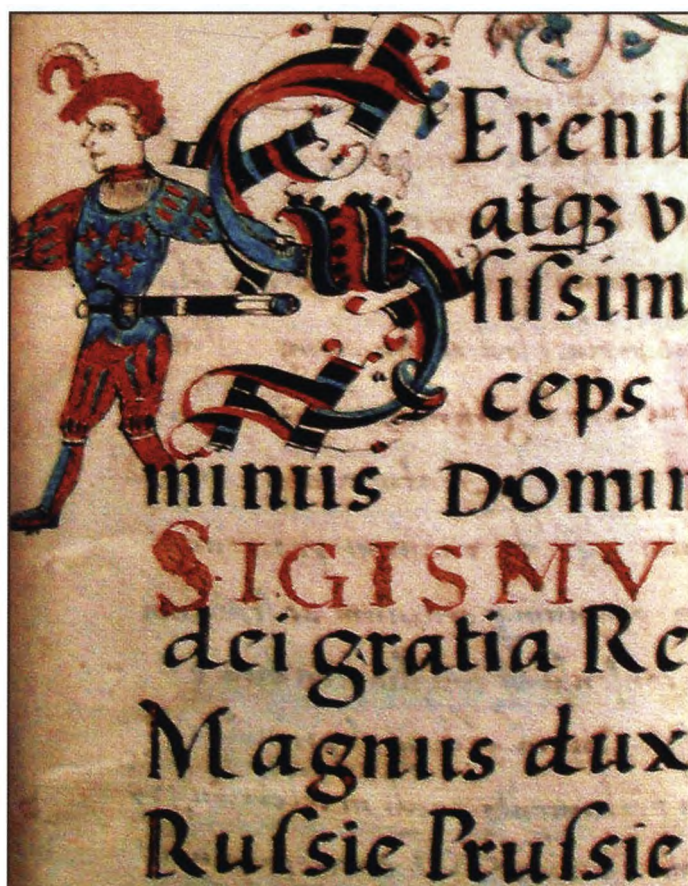 SEreniſ
atqꝫ v
ſiſsim
ceps
minus Domin
SIGISMV
dei gratia Re
Magnus dux
Ruſsie Pruſsie